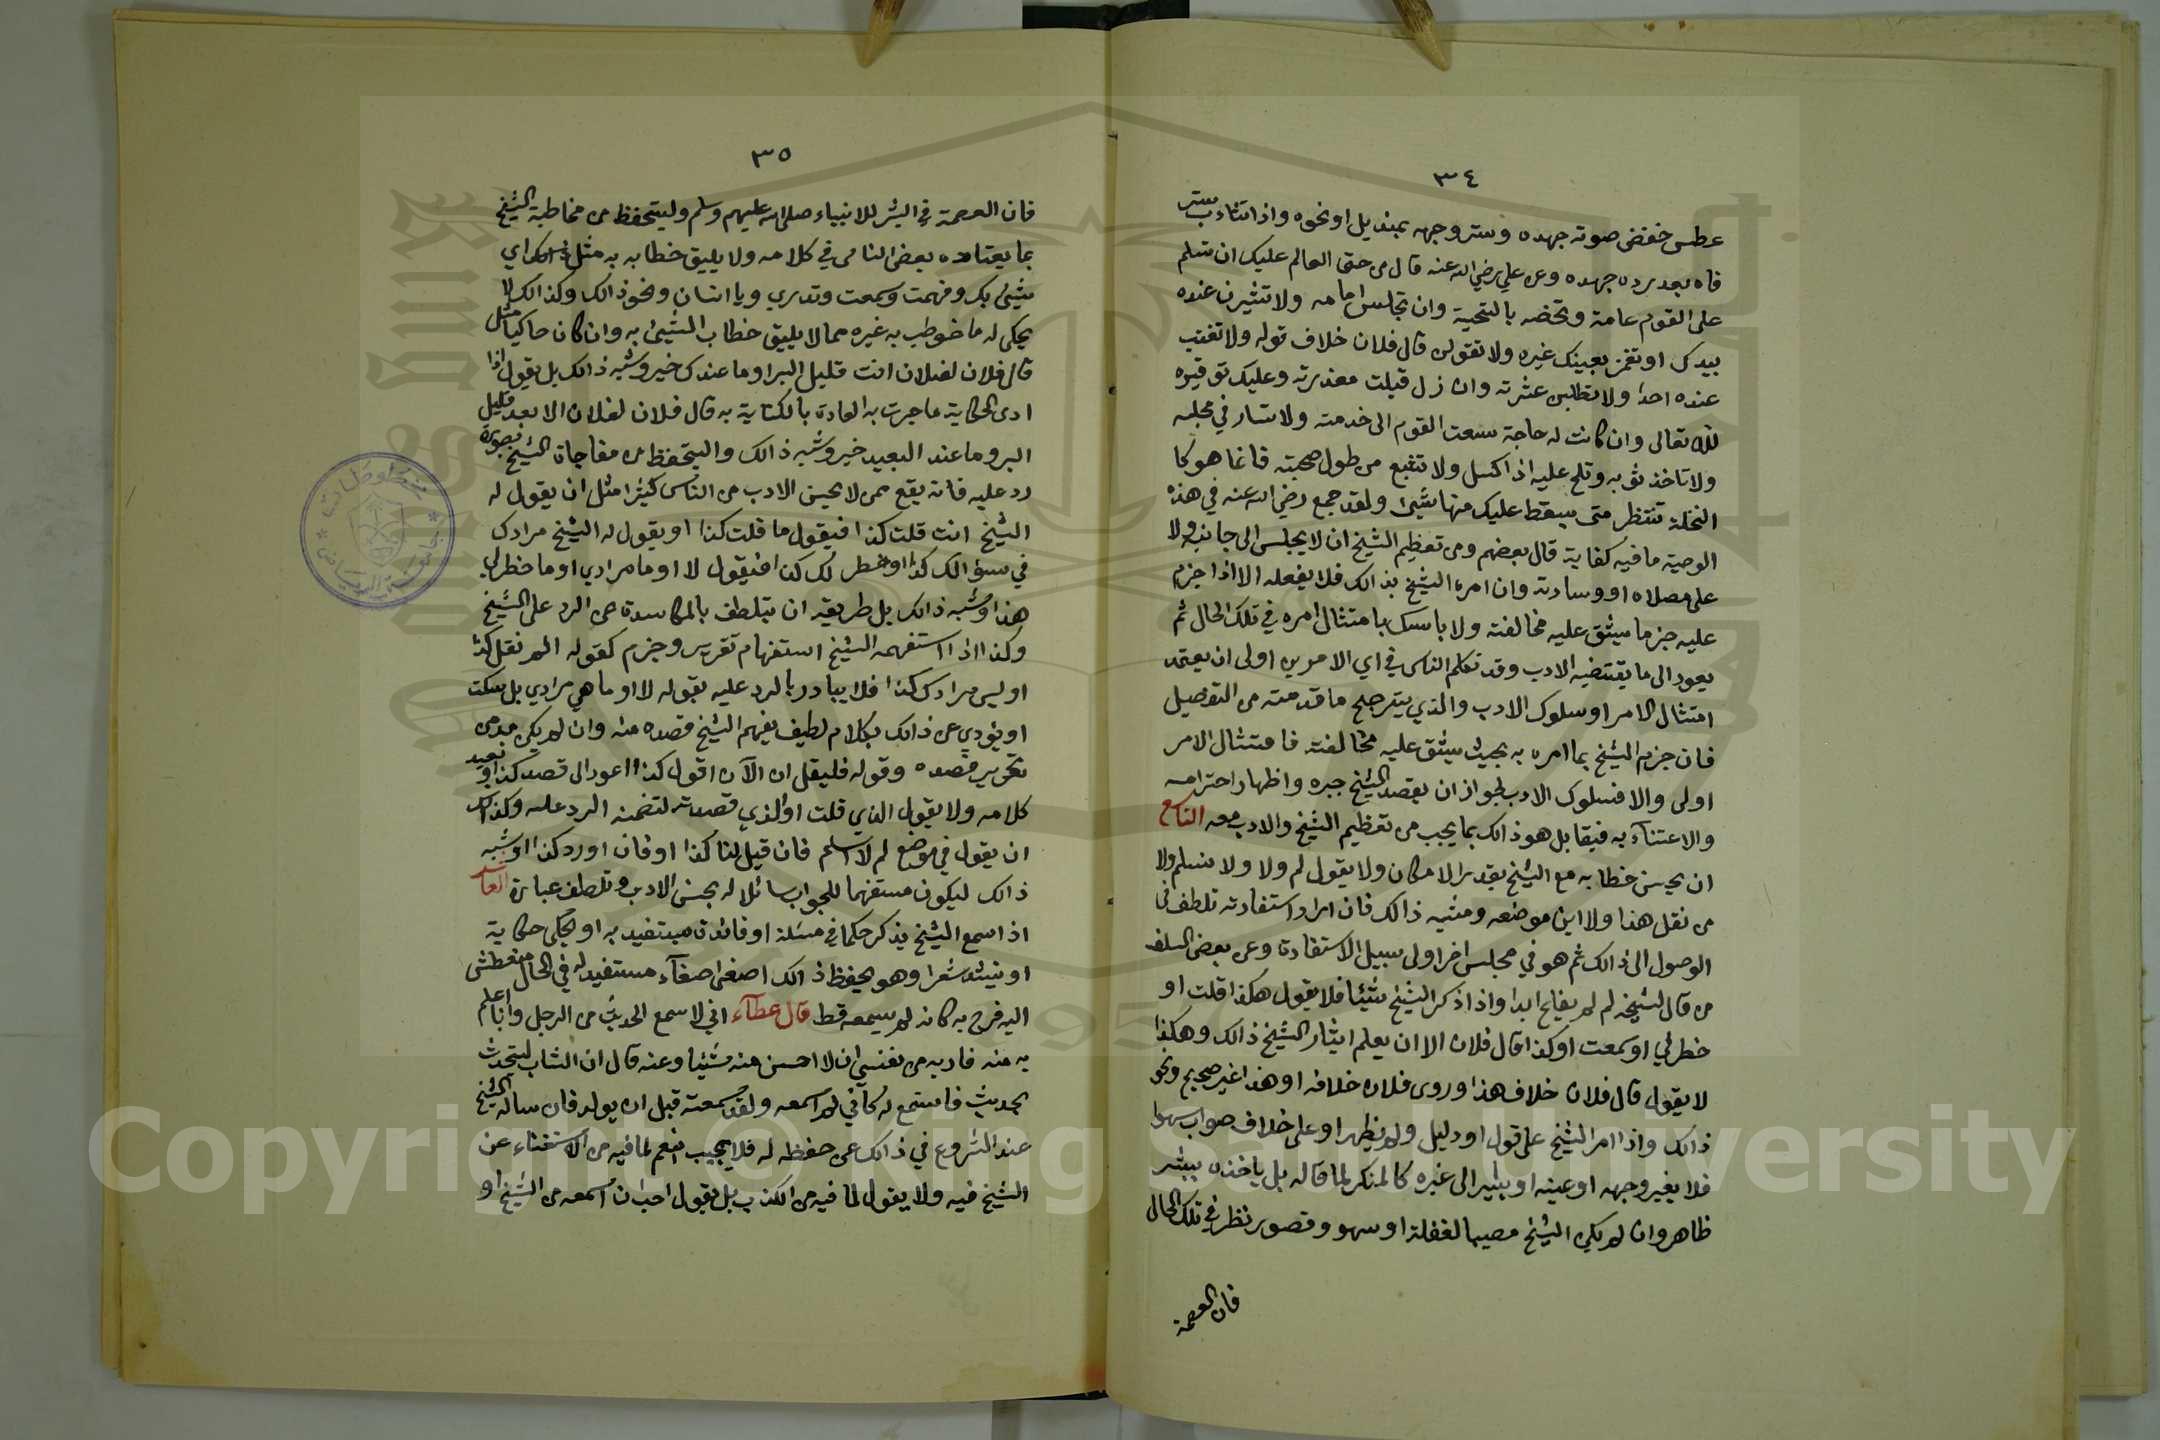 ٣٤
عطس خفض صوته جهده وستر وجهه بمنديل او نحوه واذا تثاءب ستر
فاه بعد رده جهده وعن علي رضي الله عنه قال من حق العالم عليك ان تسلم
على القوم عامة وتخصه بالتحية وان تجلس امامه ولا تشيرن عنده
بيدك او تغمز بعينك غيره ولا تقولن قال فلان خلاف قوله ولا تغتب
عنده احدا ولا تطلبن عثرته وان زل قبلت معذرته وعليك توقيره
لله تعالى وان كانت له حاجة سبقت القوم الى خدمته ولا تسار في مجلسه
ولا تاخذ ثوبه وتلح عليه اذا كسل ولا تشبع من طول صحبته فانما هو كا
النخلة تنتظر متى يسقط عليك منها شيئ ولقد جمع رضي الله عنه في هذه
الوصية ما فيه كفاية قال بعضهم ومن تعظيم الشيخ ان لا يجلس الى جانبه ولا
على مصلاه او وسادته وان امره الشيخ بذالك فلا يفعله الا اذا جزم
عليه جزما يشق عليه مخالفته ولا باسك بامتثال امره في تلك الحال ثم
يعود الى ما يقتضيه الادب وقد تكلم الناس في اي الامرين اولى ان يعتمد
امتثال الامر او سلوك الادب والذي يترجح ما قدمته من التفصيل
فان جزم الشيخ بما امره به بحيث يشق عليه مخالفته فامتثال الامر
اولى والا فسلوك الادب لجواز ان يقصد الشيخ جبره واظهار احترامه
والاعتناء به فيقابل هو ذالك بما يجب من تعظيم الشيخ والادب معه التاسع
ان يحسن خطابه مع الشيخ بقدر الامكان ولا يقول لم ولا ولا نسلم ولا
من نقل هذا ولا اين موضعه وشبه ذالك فان اراد استفادته تلطف في
الوصول الى ذالك ثم هو في مجلس اخر اولى سبيل الاستفادة وعن بعض السلف
من قال لشيخه لم لم يفلح ابدا واذا ذكر الشيخ شيئا فلا يقول هكذا قلت او
خطر لي او سمعت او كذا قال فلان الا ان يعلم ايثار الشيخ ذالك وهكذا
لا يقول قال فلان خلاف هذا وروى فلان خلافه او هذا غير صحيح ونحو
ذالك واذا امر الشيخ على قول او دليل ولم يظهر او على خلاف صواب سهوا
فلا يغير وجهه او عينه او يشير الى غيره كالمنكر لما قاله بل ياخذه ببشر
ظاهر وان لم يكن الشيخ مصيبا لغفلة او سهو وقصور نظر في تلك الحال
فان العصمة
٣٥
فان العصمة في البشر للانبياء صلى الله عليهم وسلم وليتحفظ من مخاطبة الشيخ
بما يعتاده بعض الناس في كلامه ولا يليق خطابه به مثل اي
شيئ بك وفهمت وسمعت وتدري ويا انسان ونحو ذالك وكذالك لا
يحكى له ما خوطب به غيره مما لا يليق خطاب الشيئ به وان كان حاكيا مثل
قال فلان لفلان انت قليل البر او ما عندك خير وشبه ذالك بل يقول اذا
ادى الحكاية ما جرت به العادة بالكناية به قال فلان لفلان الابعد قليل
البر وما عند البعيد خير وشبه ذالك واليتحفظ من مفاجاة الشيخ بصورة
رد عليه فانه يقع ممن لا يحسن الادب من الناس كثيرا مثل ان يقول له
الشيخ انت قلت كذا فيقول ما قلت كذا او يقول له الشيخ مرادك
في سؤالك كذا او خطر لك كذا فيقول لا او ما مرادي او ما خطر لي
هذا وشبه ذالك بل طريقه ان يتلطف بالمكاسدة عن الرد على الشيخ
وكذا اذا استفهمه الشيخ استفهام تقرير وجزم كقوله الم تقل كذا
او ليس مرادك كذا فلا يبادر بالرد عليه بقوله لا او ما هي مرادي بل سكت
او يؤدي عن ذالك بكلام لطيف يفهم الشيخ قصده منه وان لم يكن
تحرير قصده وقوله فليقل ان الآن اقول كذا اعود الى قصد كذا او يعيد
كلامه ولا يقول الذي قلت او الذي قصدته لتضمنه الرد عليه وكذالك
ان يقول في موضع لم لا اسلم فان قيل لنا كذا او فان اورد كذا او شبه
ذالك ليكون مستفهما للجواب سائلا له بحسن الادب وتلطف عبارة العاشر
اذا سمع الشيخ يذكر حكما في مسئلة او فائدة مستفيد به او يحكى حكاية
او ينشد شعرا وهو يحفظ ذالك اصغى اصغاء مستفيد له في الحال متعطش
اليه فرح به كانه لم يسمعه قط قال عطاء اني لا سمع الحديث من الرجل وانا اعلم
به منه فاريه من نفسي ان لا احسن منه شيئا وعنه قال ان الشاب ليتحدث
بحديث فاستمع له كأني لم اسمعه ولقد سمعته قبل ان يولد فان ساله الشيخ
عند الشروع في ذالك عن حفظه له فلا يجيب بنعم لما فيه من الاستغناء عن
الشيخ فيه ولا يقول لا لما فيه من الكذب بل يقول احب ان اسمعه من الشيخ او
Copyright © King Saud University